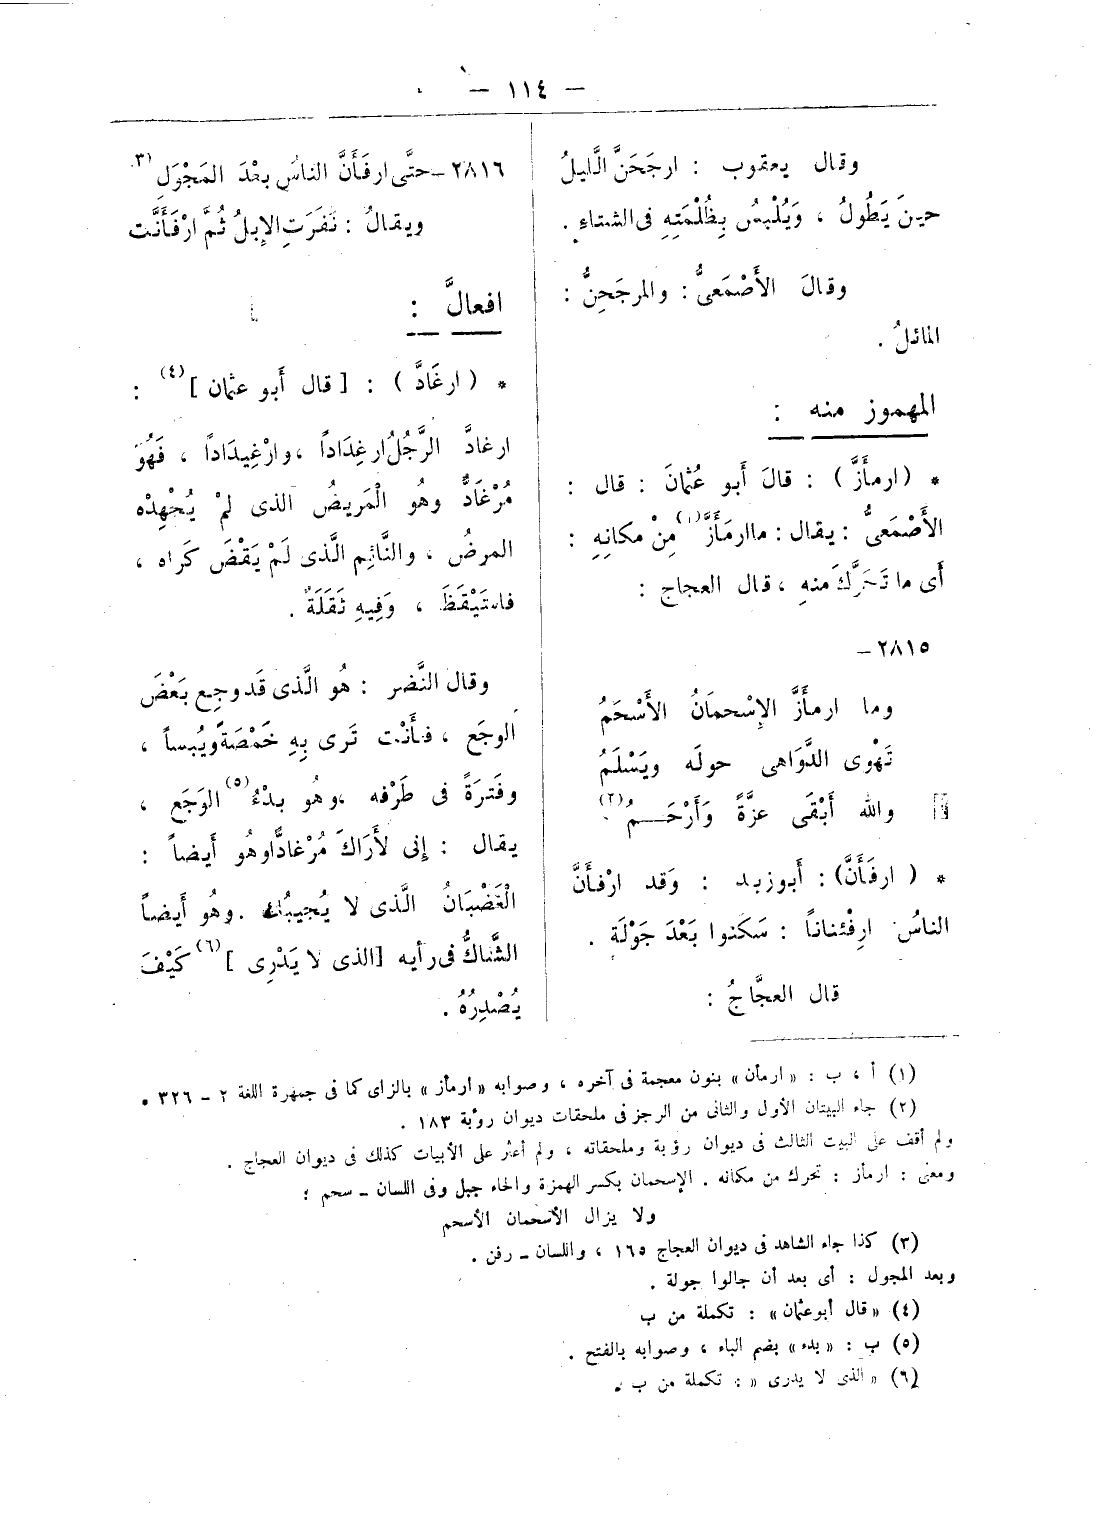 — ١١٤ —
وقال يعقوب : ارجَحَنَّ الَّليلُ
حينَ يَطُولُ ، وَيُلْبِسُ بِظُلْمَتِهِ فى الشتاءِ .
وقالَ الأَصْمَعىُّ : والمرجَحِنُّ :
المائلُ .
المهموز منه :
* ( ارمأَزَّ ) : قالَ أَبو عُثمانَ : قال :
الأَصْمَعىُّ : يقال : ماارمَأَزَّ(١) مِنْ مكانِهِ :
أَى ما تَحَرَّكَ منهِ ، قال العجاج :
٢٨١٥ –
وما ارمأَزَّ الإِسْحمَانُ الأَسْحَمُ
تَهْوِى الدَّوَاهى حولَه ويَسْلَمُ
والله أَبْقَى عزَّةً وَأَرْحَـــمُ(٢)
* ( ارفَأَنَّ) : أَبوزيد : وَقد ارْفأَنَّ
الناسُ ارِفْئناناً : سَكنوا بَعْدَ جَوْلَةٍ .
قال العجَّاجُ :
٢٨١٦ – حتَّى ارفَأَنَّ الناسُ بعْدَ المَجْوَلِ(٣)
ويقالُ : نَفَرَتِ الإِبلُ ثُمَّ ارْفَأَنَّت
افعالَّ :
* ( ارغَادَّ ) : [ قال أَبو عثمان ](٤) :
ارغادَّ الرَّجُلُ ارغِدَاداً ، وارْغِيدَاداً ، فَهُوَ
مُرْغَادٌّ وهُو الْمَريضُ الذى لمْ يُجْهِدْه
المرضُ ، والنَّائِم الَّذى لَمْ يَقْضَ كَراه ،
فاستَيْقَظَ ، وَفِيهِ ثَقَلَةٌ .
وقال النَّضر : هُو الَّذى قَد وجِع بَعْضَ
الوجَع ، فأَنْت تَرى بِهِ خَمْصَةً ويُبساً ،
وفَترَةً فى طَرْفه ، وهُو بدْءُ(٥) الوَجَع ،
يقال : إِنى لأَرَاكَ مُرْغادًّا وهُو أَيضاً :
الْغَضْبَانُ الَّذى لا يُجيبُك . وهُو أَيضاً
الشَّاكُّ فى رأيه [الذى لا يَدْرِى ](٦) كَيْفَ
يُصْدِرُهُ .
(١) أ ، ب : « ارمأن » بنون معجمة فى آخره ، وصوابه « ارمأز » بالزاى كما فى جمهرة اللغة ٢ – ٣٢٦ .
(٢) جاء البيتان الأول والثانى من الرجز فى ملحقات ديوان رؤبة ١٨٣ .
ولم أقف على البيت الثالث فى ديوان رؤبة وملحقاته ، ولم أعثر على الأبيات كذلك فى ديوان العجاج .
ومعنى : ارمأز : تحرك من مكانه . الإسحمان بكسر الهمزة والحاء جبل وفى اللسان – سحم :
ولا يزال الأسحمان الأسحم
(٣) كذا جاء الشاهد فى ديوان العجاج ١٦٥ ، واللسان – رفن .
وبعد المجول : أى بعد أن جالوا جولة .
(٤) « قال أبوعثمان » : تكملة من ب
(٥) ب : « بدء » بضم الباء ، وصوابه بالفتح .
(٦) « الذى لا يدرى » : تكملة من ب .